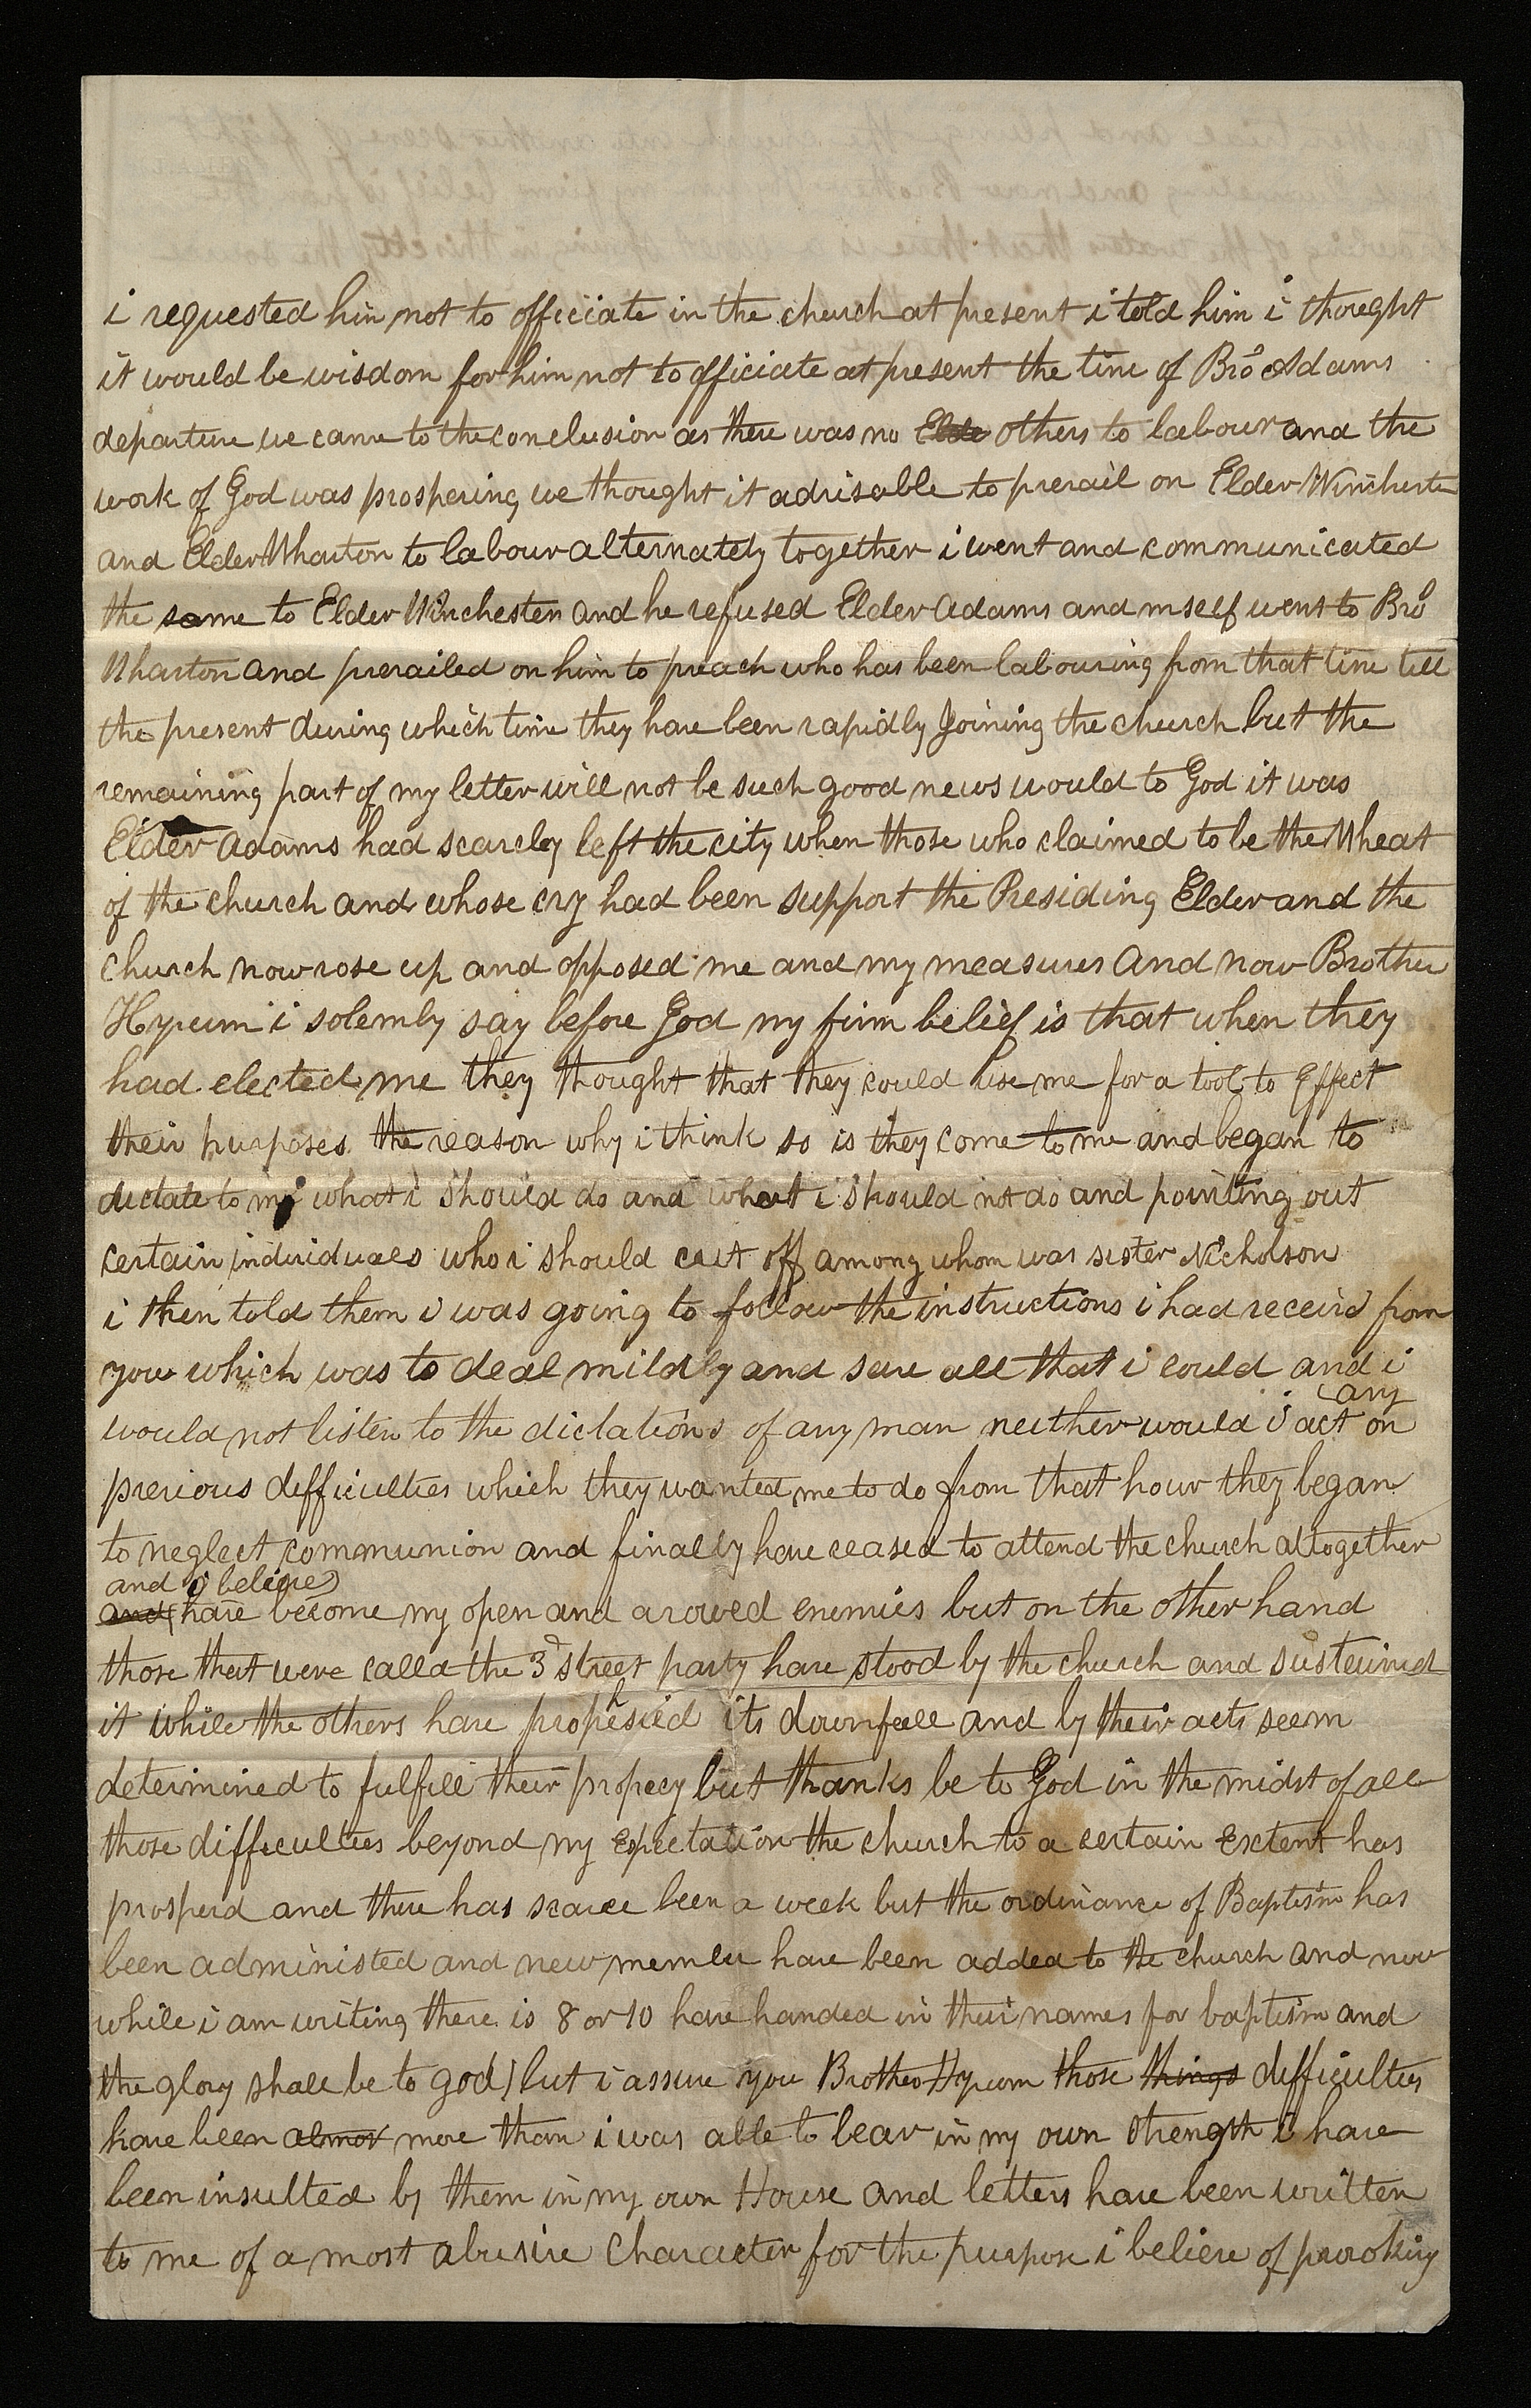 i requested him not to officiate in the church at present i told him i thought
it would be wisdom for him not to officiate at present the time of Bro Adams
departure we came to the conclusion as there was no Elde others to labour and the
work of God was prospering we thought it advisable to prevail on Elder Winchester
and Elder Wharton to labour alternately together i went and communicated
the same to Elder Winchester and he refused Elder Adams and mself went to Bro
Wharton and prevailed on him to preach who has been labouring from that time till
the present during which time they have been rapidly Joining the church but the
remaining part of my letter will not be such good news would to God it was
Elder Adams had scarcley left the city when those who claimed to be the Wheat
of the church and whose cry had been support the Presiding Elder and the
church now rose up and opposed me and my measures And now Brother
Hyrum i solemly say before God my firm belief is that when they
had elected me they thought that they could use me for a tool to Effect
their purposes the reason why i think so is they come to me and began to
dictate to me what i should do and what i should not do and pointing out
certain individuals who i should cut off among whom was sister Nicholson
i then told them i was going to follow the instructions i had receivd from
you which was to deal mildly and save all that i could and i
would not listen to the dictations of any man neither would i act on
any
previous difficulties which they wanted me to do from that hour they began
to neglect communion and finally have ceased to attend the church altogether
and i believe
and have become my open and avowed enemies but on the other hand
those that were calld the 3d street party have stood by the church and susteined
it while the others have prophesied its downfall and by their acts seem
determined to fulfill their propecy but thanks be to God in the midst of all
those difficulties beyond my Expectation the church to a certain Exctent has
prosperd and there has scarce been a week but the ordinance of Baptism has
been administed and new member have been added to the church and now
while i am writing there is 8 or 10 have handed in their names for baptism and
the glory shall be to god) but i assure you Brother Hyrum those things difficulties
have been almost more than i was able to bear in my own strength i have
been insulted by them in my own House and letters have been written
to me of a most abusive Character for the purpose i believe of provoking